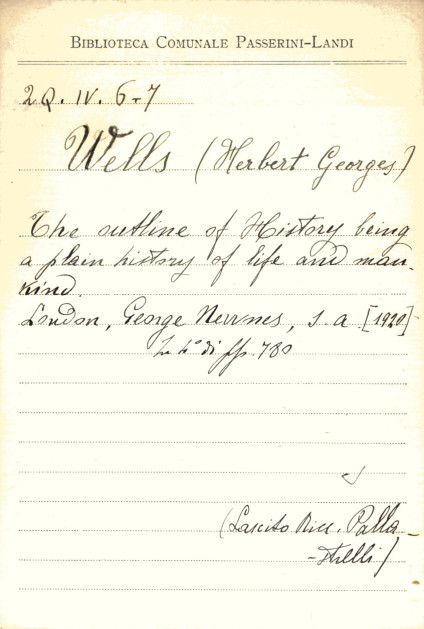 BIBLIOTECA COMUNALE PASSERINI-LANDI
2Q. IV. 6-7
Wells (Herbert Georges)
The outline of History being
a plain history of life and man-
kind.
London, George Newnes, s. a. [1920]
In 4° di pp. 780
(Lascito Picc. Palla-
-strelli)